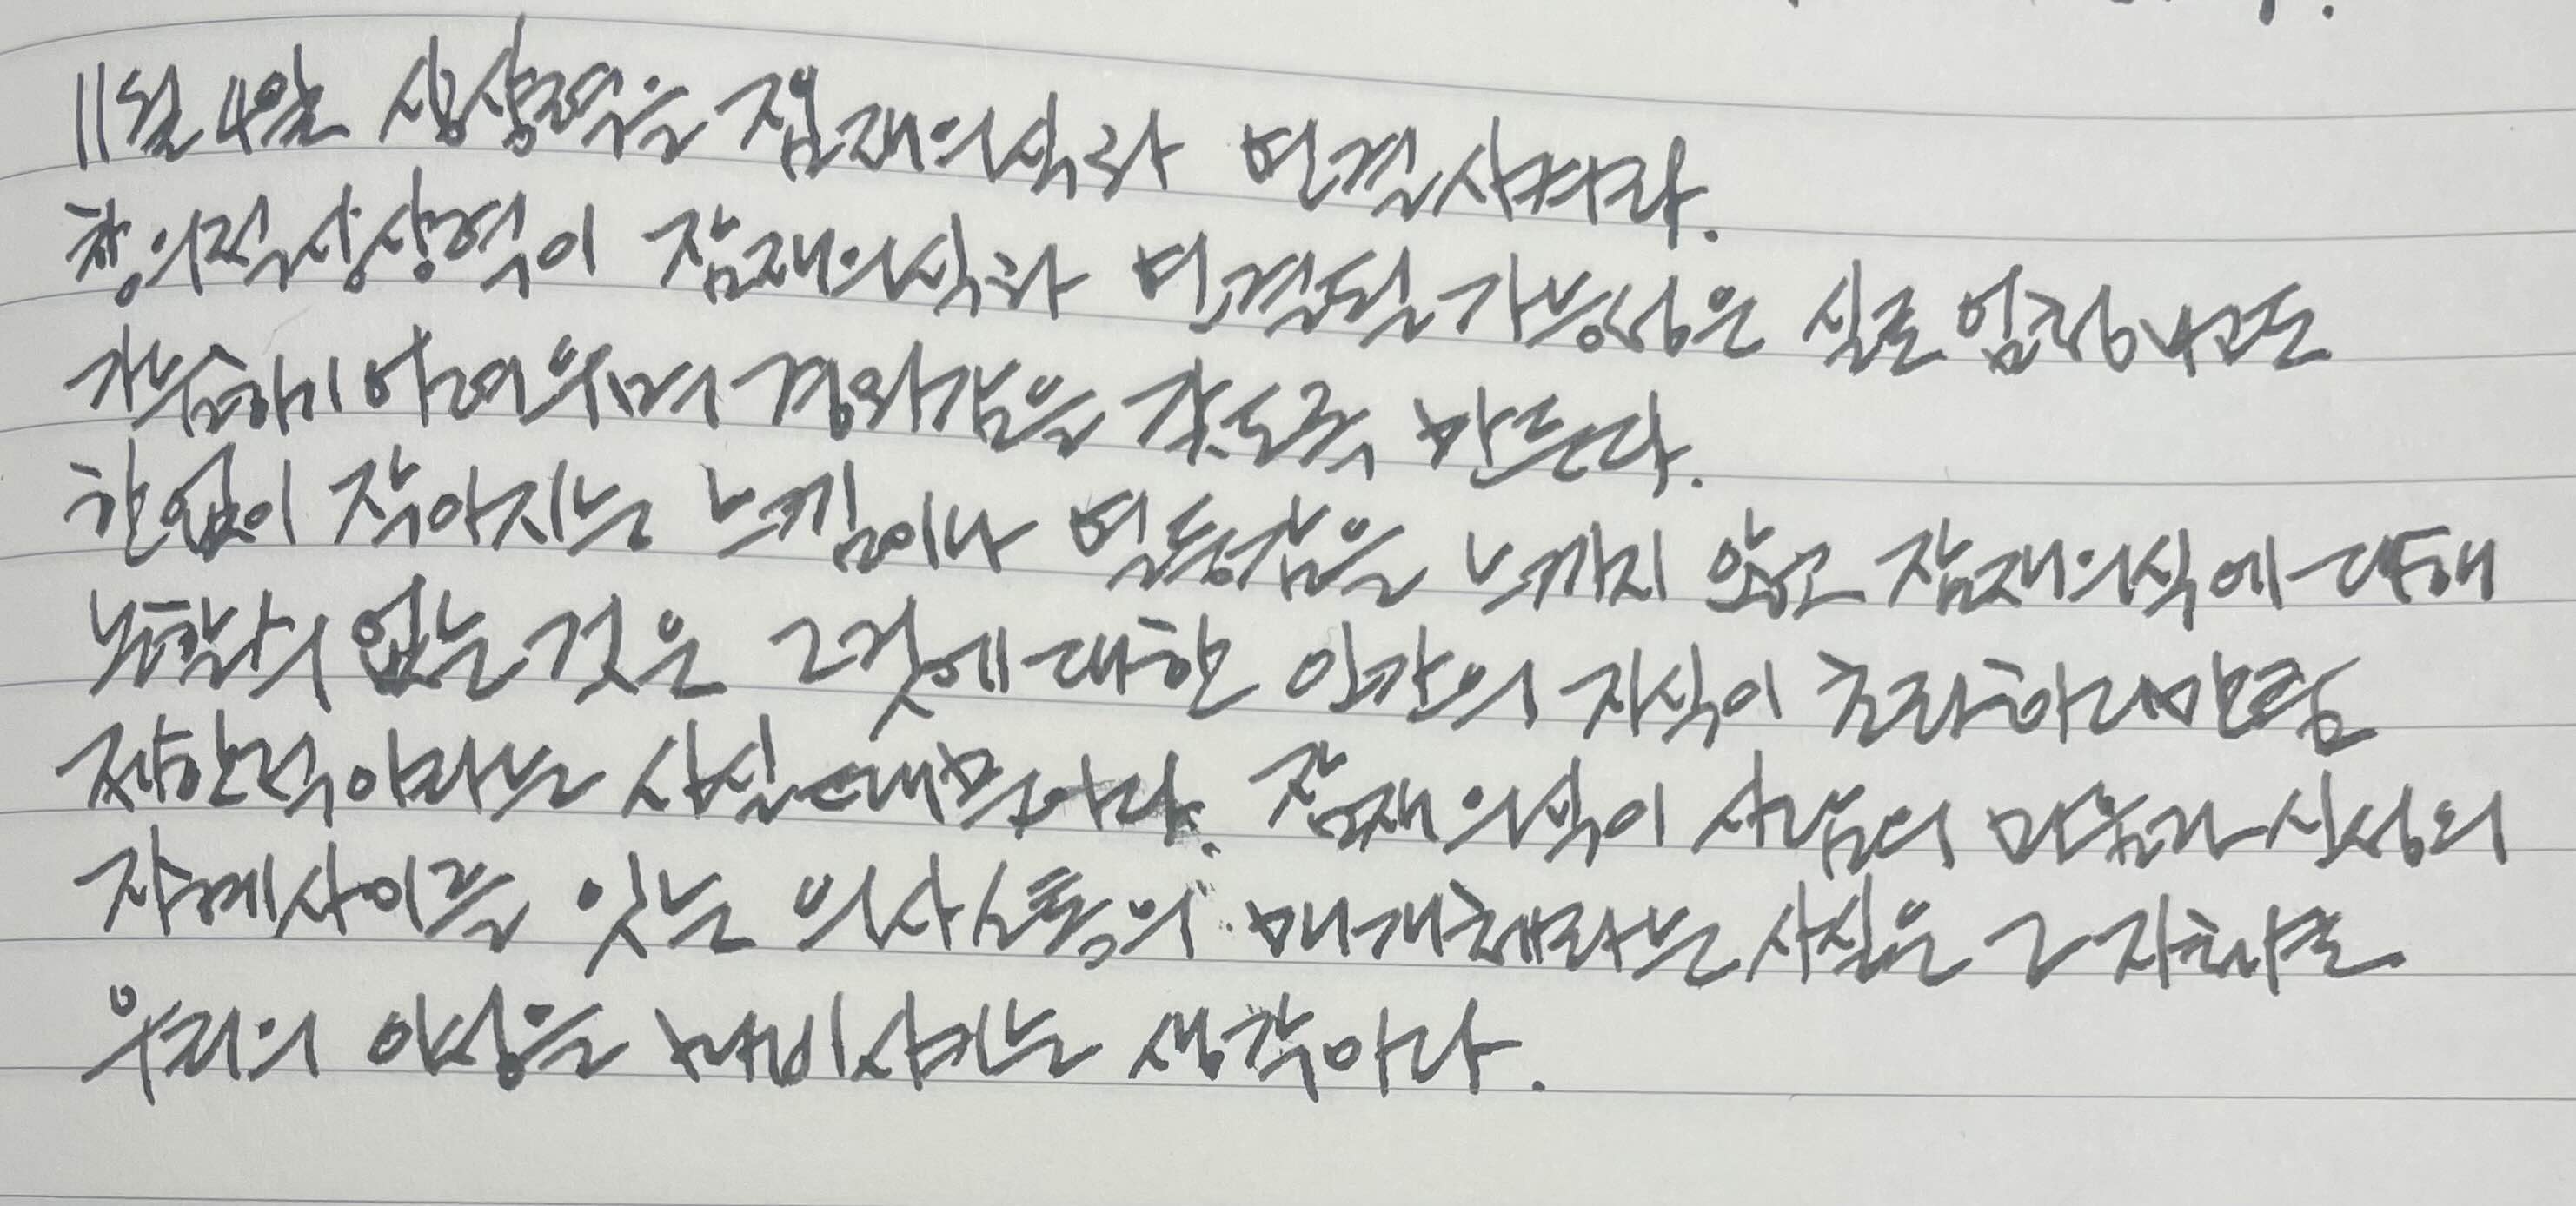 11월 4일 상상력을 잠재의식과 연결시켜라.
창의적 상상력이 잠재의식과 연결될 가능성은 실로 엄청나고도
가늠하기 어려우며 경외감을 갖도록 만든다.
한없이 작아지는 느낌이나 열등감을 느끼지 않고 잠재의식에 대해
논할 수 없는 것은 그것에 대한 인간의 지식이 초라하리만큼
제한적이라는 사실 때문이다. 잠재의식이 사람의 마음과 신성의
지혜 사이를 잇는 의사소통의 매개체라는 사실은 그 자체로
우리의 이성을 마비시키는 생각이다.